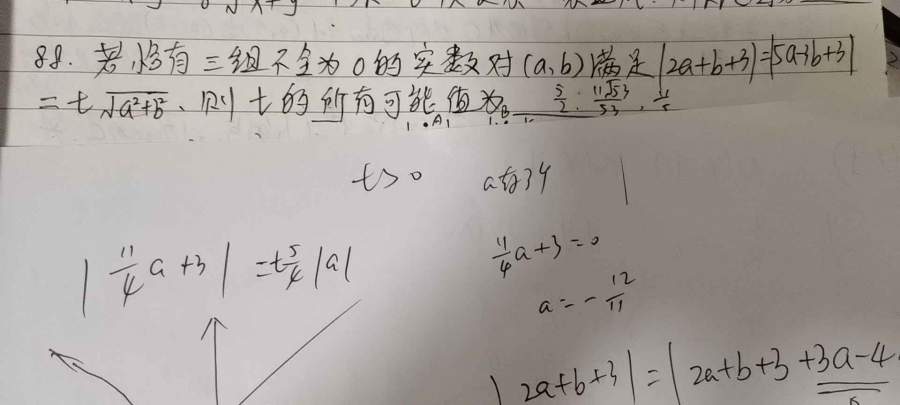 88. 若恰有三组不全为0的实数对(a,b)满足|2a+b+3|=|5a-3b+3|
=t√a²+b², 则t的所有可能值为 5/2, 11√53/53, 11/5
t>0
|11/4 a+3|=t5/4|a|
11/4 a+3=0
a=-12/11
|2a+b+3|=|2a+b+3+3a-4